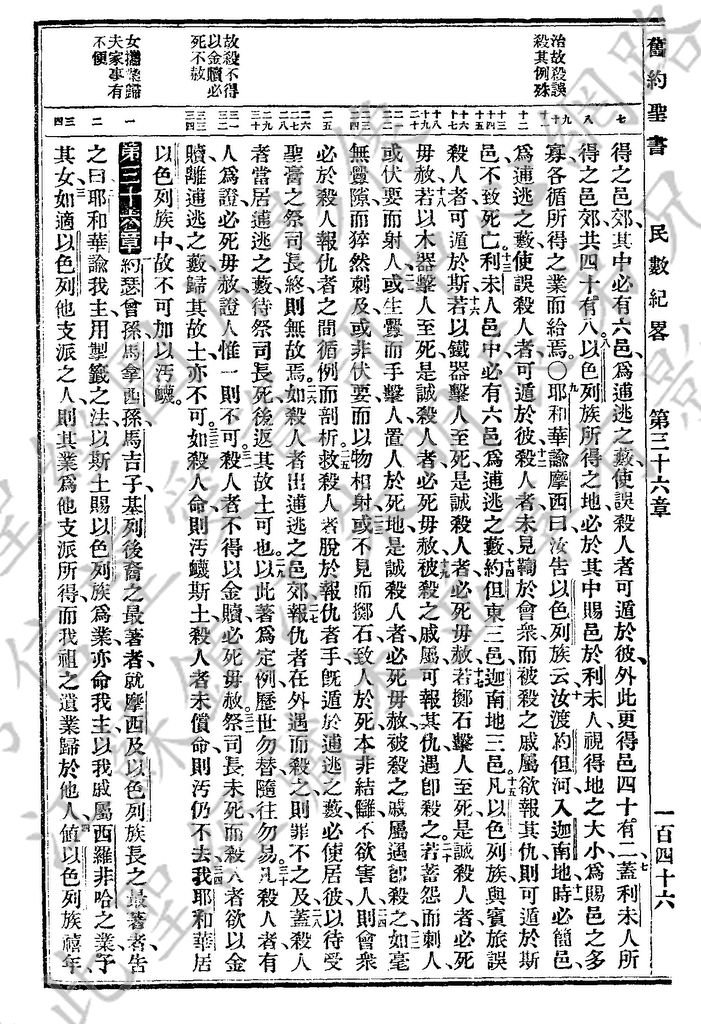 舊約聖書　民數紀畧　第三十六章　一百四十六
治故殺誤
殺其例殊
故殺不得
以金贖必
死不赦
女攜業歸
夫家事有
不便
得之邑郊、其中必有六邑、爲逋逃之藪、使誤殺人者可遁於彼、外此更得邑四十有二、蓋利未人所
得之邑郊、共四十有八、以色列族所得之地、必於其中賜邑於利未人、視得地之大小、爲賜邑之多
寡、各循所得之業而給焉。〇耶和華諭摩西曰、汝告以色列族云、汝渡約但河、入迦南地時、必簡邑、
爲逋逃之藪、使誤殺人者、可遁於彼、殺人者未見鞫於會衆、而被殺之戚屬欲報其仇、則可遁於斯
邑、不致死亡、利未人邑中、必有六邑爲逋逃之藪、約但東三邑、迦南地三邑。凡以色列族與賓旅、誤
殺人者、可遁於斯、若以鐵器擊人至死、是誠殺人者、必死毋赦、若擲石擊人至死、是誠殺人者、必死
毋赦、若以木器擊人至死、是誠殺人者、必死毋赦、被殺之戚屬、可報其仇、遇卽殺之。若蓄怨而刺人、
或伏要而射人、或生釁而手擊人、置人於死地、是誠殺人者、必死毋赦、被殺之戚屬、遇卽殺之、如毫
無釁隙、而猝然刺及、或非伏要而以物相射、或不見而擲石、致人於死、本非結讎、不欲害人、則會衆
必於殺人報仇者之間、循例而剖析、救殺人者、脫於報仇者手、旣遁於逋逃之藪、必使居彼、以待受
聖膏之祭司長終、則無故焉、如殺人者出逋逃之邑郊、報仇者在外遇而殺之、則罪不之及、蓋殺人
者當居逋逃之藪、待祭司長死後、返其故土可也、以此著爲定例、歷世勿替、隨往勿易。凡殺人者、有
人爲證、必死毋赦、證人惟一則不可、殺人者不得以金贖、必死毋赦、祭司長未死、而殺人者欲以金
贖、離逋逃之藪、歸其故土、亦不可。如殺人命、則汚衊斯土、殺人者未償命、則汚仍不去、我耶和華居
以色列族中、故不可加以汚衊。
第三十六章 約瑟曾孫、馬拿西孫、馬吉子、基列後裔之最著者、就摩西及以色列族長之最著者、告
之曰、耶和華諭我主、用掣籤之法、以斯土賜以色列族爲業、亦命我主以我戚屬西羅非哈之業、予
其女、如適以色列他支派之人、則其業爲他支派所得、而我祖之遺業歸於他人、値以色列族禧年、